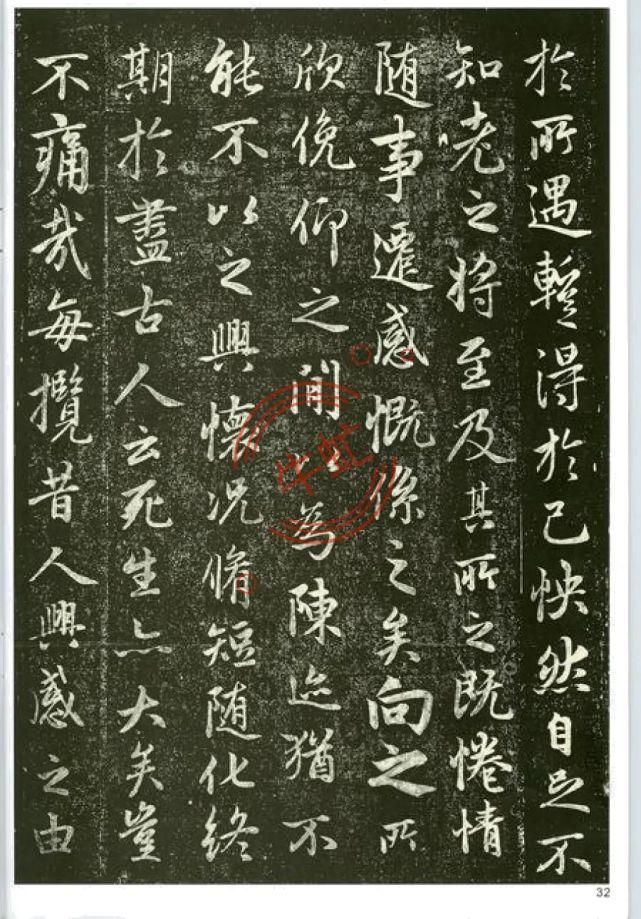 於所遇蹔得於己怏然自足不
知老之將至及其所之既惓情
隨事遷感慨係之矣向之所
欣俛仰之間以為陳迹猶不
能不以之興懷況脩短隨化終
期於盡古人云死生亦大矣豈
不痛哉每攬昔人興感之由
32